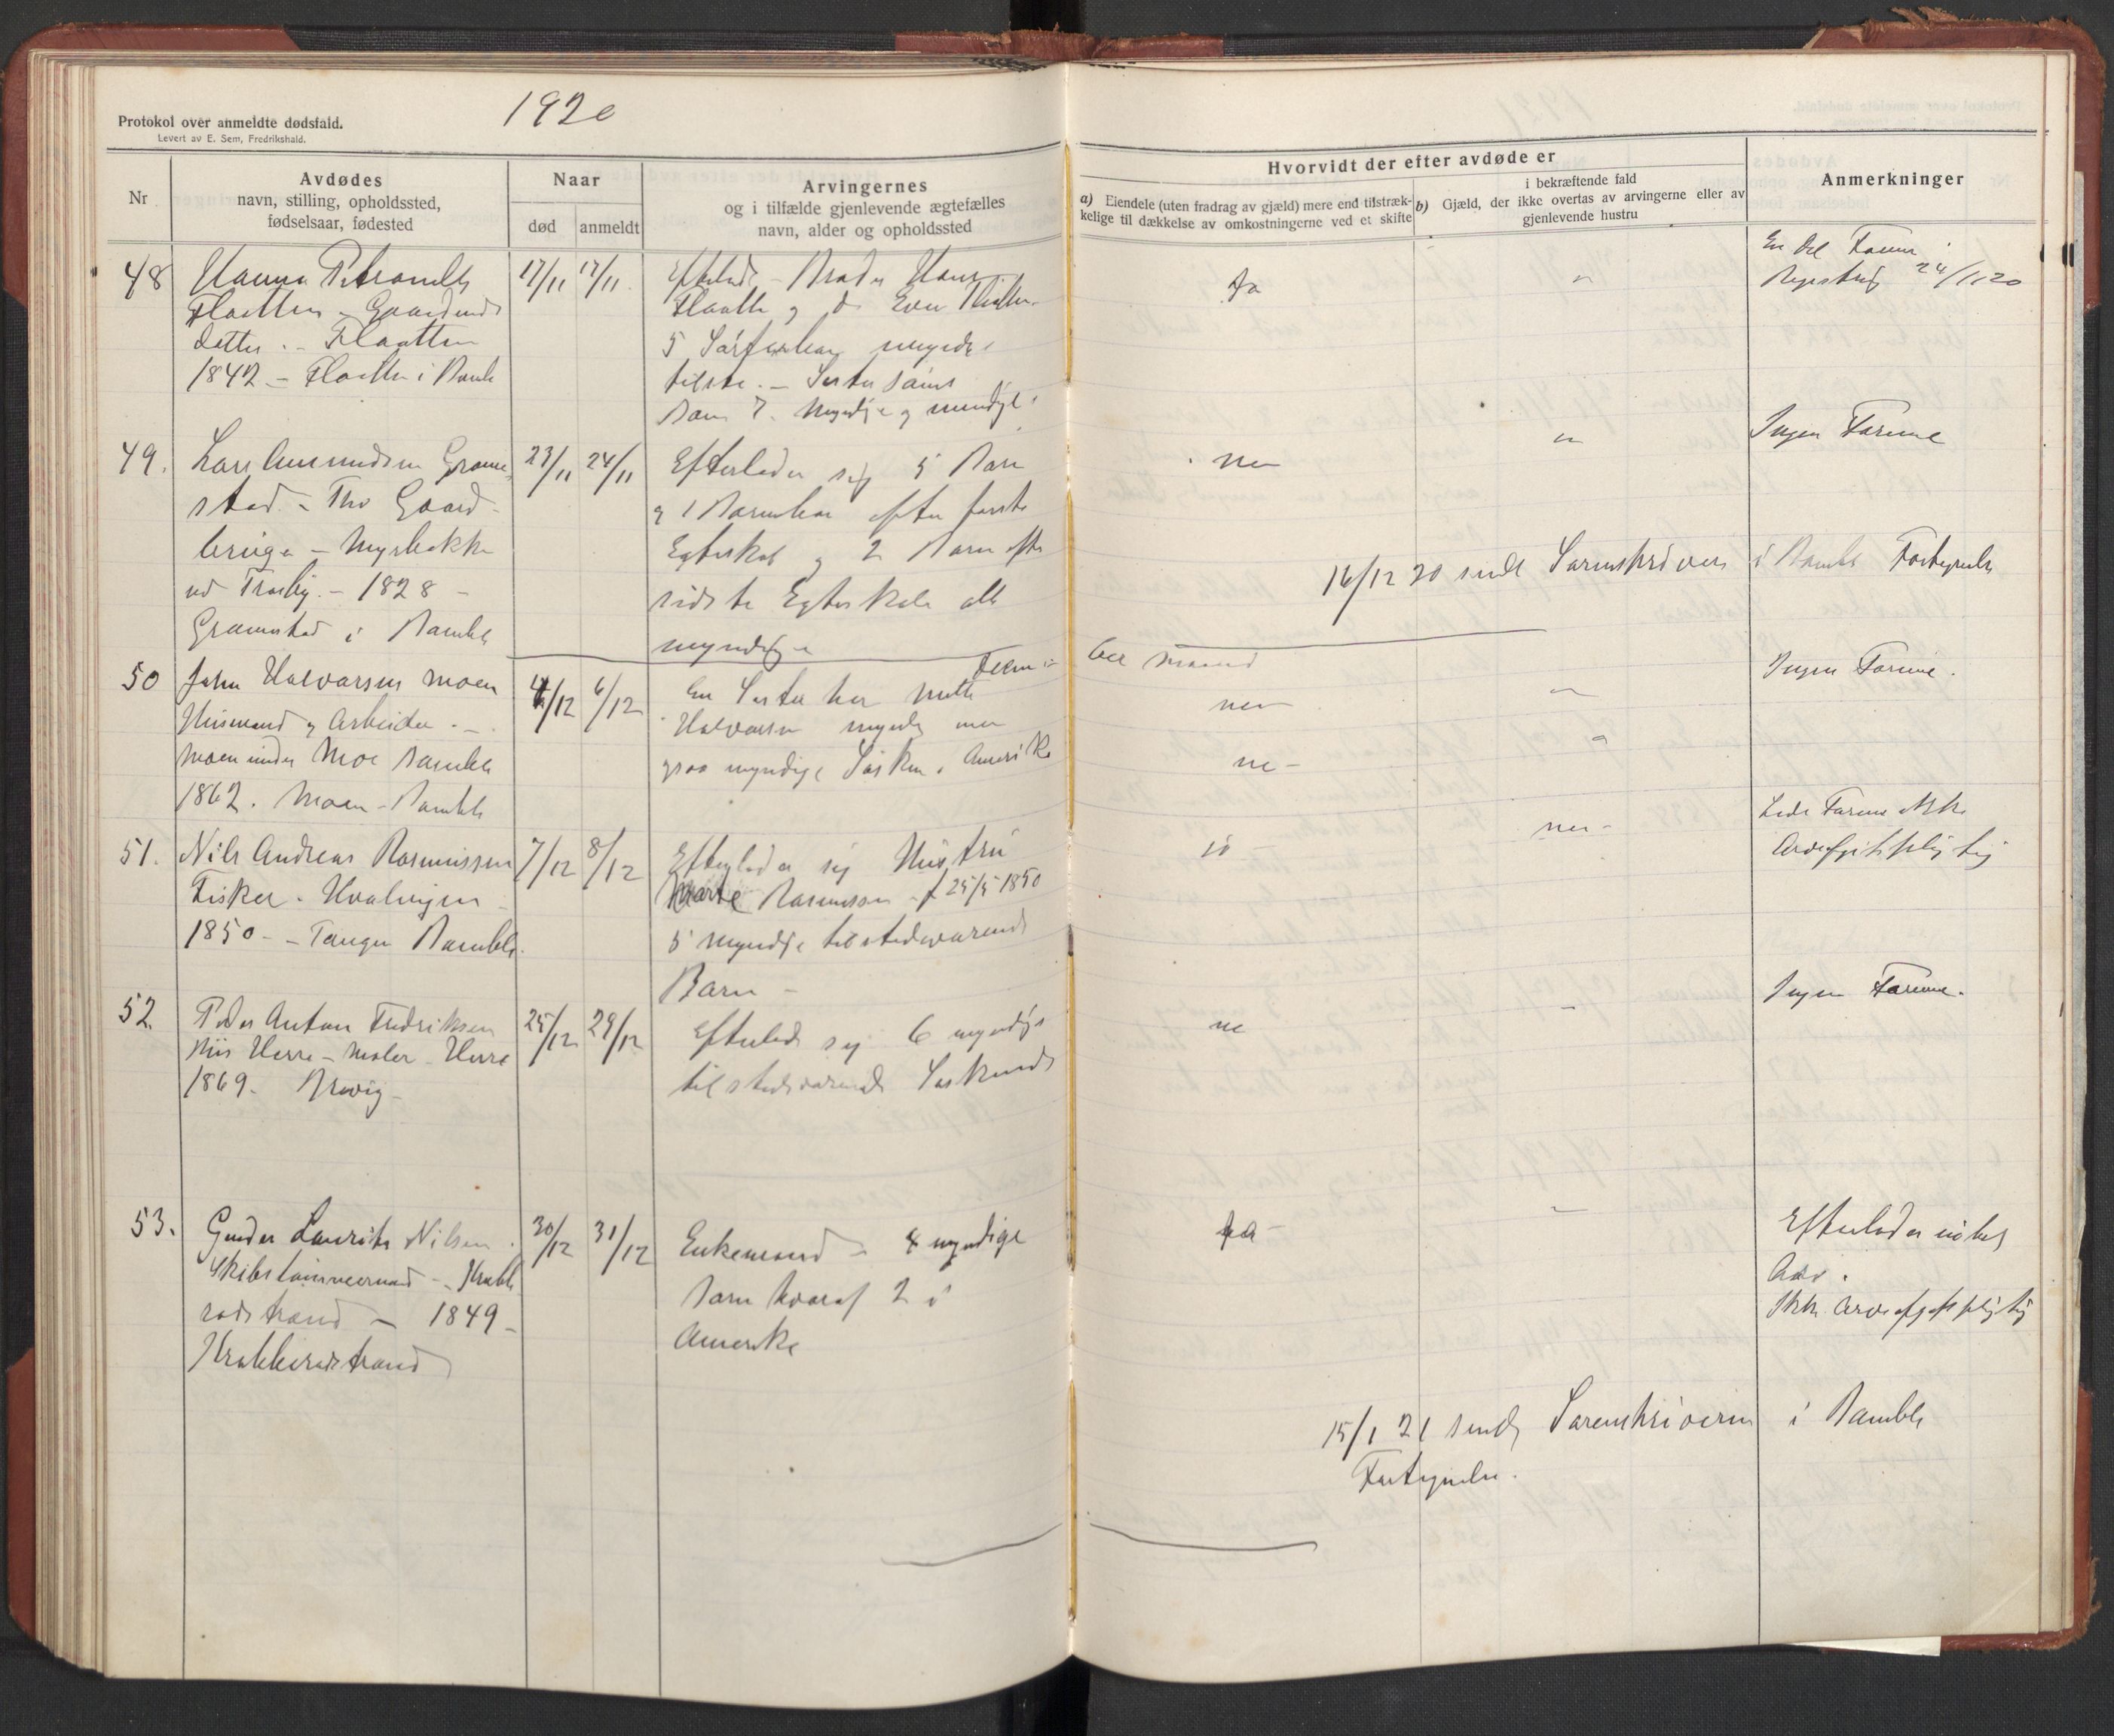 1920
Protokol over anmeldte dødsfald.
Levert av E. Sem, Fredrikshald.
Nr
Avdødes
navn, stilling, opholdssted,
fødselsaar, fødested
Naar
død
anmeldt
Arvingernes
og i tilfælde gjenlevende ægtefælles
navn, alder og opholdssted
Hvorvidt der efter avdøde er
a) Eiendele (uten fradrag av gjæld) mere end tilstræk-
kelige til dækkelse av omkostningerne ved et skifte
i bekræftende fald
b) Gjæld, der ikke overtas av arvingerne eller av
gjenlevende hustru
Anmerkninger
48
Hanna
Flaatten - Gaard
datter - Flaatten
1842 - Flaatten i Bamble
17/11 17/11
Broder Hans
Flaatten og
5 myndige
7 myndige og
Ja
En Del Formue
24/11 20
49.
Lars Amundsen Gromm
stad - Gaard
bruger - Myrbakken
ved Trosby - 1828 -
Gromstad i Bamble
23/11 24/11
Efterlader sig 5 Barn
og 1 Barnebarn efter første
Egteskab og 2 Barn efter
sidste Egteskab alle
myndige
nei
Ingen Formue
16/12 20 sendt Sorenskriveren i Bamble Fortegnelse
50
John Halvorsen Moen
Husmand og Arbeider -
Moen under Moe Bamble
1862. Moen - Bamble
4/12 6/12
En Søster her
Halvorsen myndig
myndige Søsken i Amerika
nei
nei -
Ingen Formue.
51.
Nils Andreas Rasmussen
Fisker - Hvalvigen -
1850 - - Tangen Bamble.
7/12 8/12
Efterlader sig Hustru
Marte Rasmussen f 25/5 1850
5 myndige tilstedeværende
Barn -
jo -
nei -
Formue ikke
Arveafgiftspligtig
52.
Peder Anton Fredriksen
Herre - Maler - Herre
1869. Brevig -
25/12 29/12
Efterlader sig 6 myndige
tilstedeværende Søskende
nei
Ingen Formue.
53.
Gunder Laurits Nilsen
Skibstømmermand - Krabbe
rødstrand - 1849 -
Krabberødstrand
30/12 31/12
Enkemand - 4 myndige
Barn hvoraf 2 i
Amerika
ja -
Efterlader
Arv.
Ikke Arveafgiftspligtig
15/1 21 sendt Sorenskriveren i Bamble
Fortegnelse.